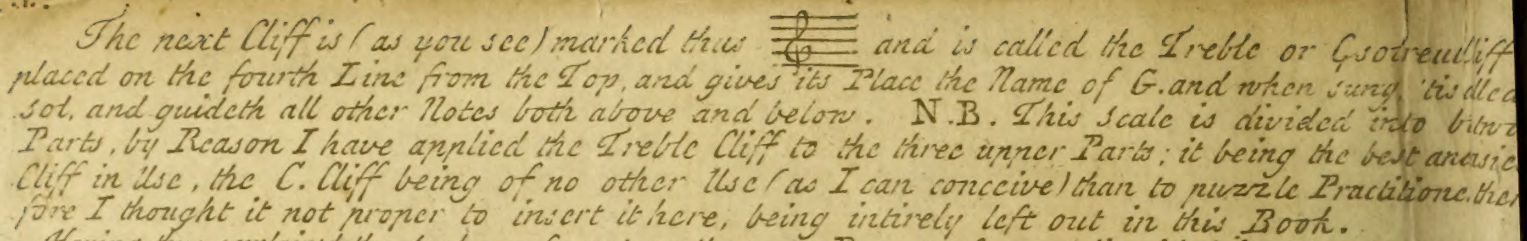 The next Cliff is (as you see) marked thus and is called the Treble or Gsolreut Cliff
placed on the fourth Line from the Top, and gives its Place the Name of G. and when sung, 'tis
sol, and guideth all other Notes both above and below. N.B. This Scale is divided into
Parts, by Reason I have applied the Treble Cliff to the three upper Parts; it being the best
Cliff in Use, the C. Cliff being of no other Use (as I can conceive) than to puzzle
fore I thought it not proper to insert it here, being intirely left out in this Book.